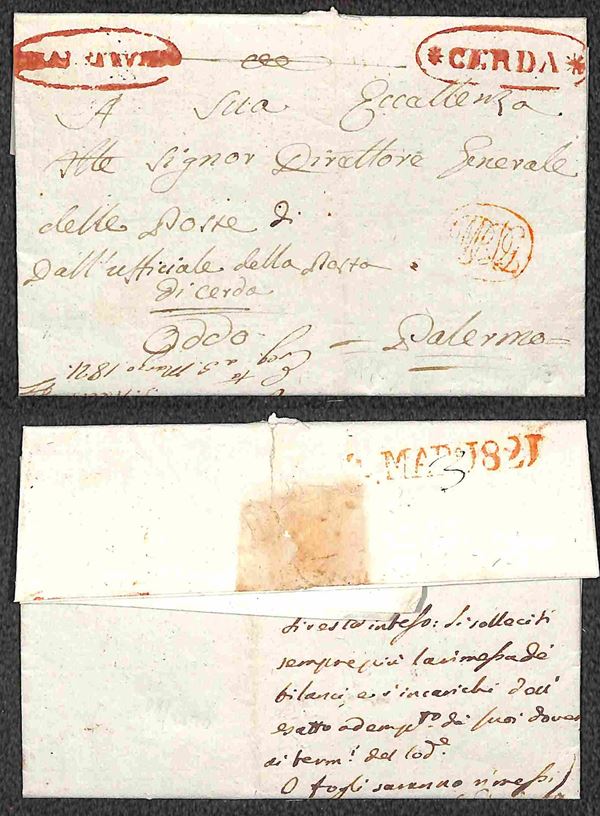 *CERDA*
A Sua Eccallenza
Alle Signor Direttore Generale
delle Poste di
Dall'ufficiale della Posta
di Cerda
Oddo
- Palermo =
a 3. Marzo 1821.
MAR. 1821
di resta inteso: si solleciti
sempre più la rimessa de'
bilanci, e s'incarichi dell'
esatto adempto. de' suoi dover
ai termi. del Code.
O fogli saranno rimessi